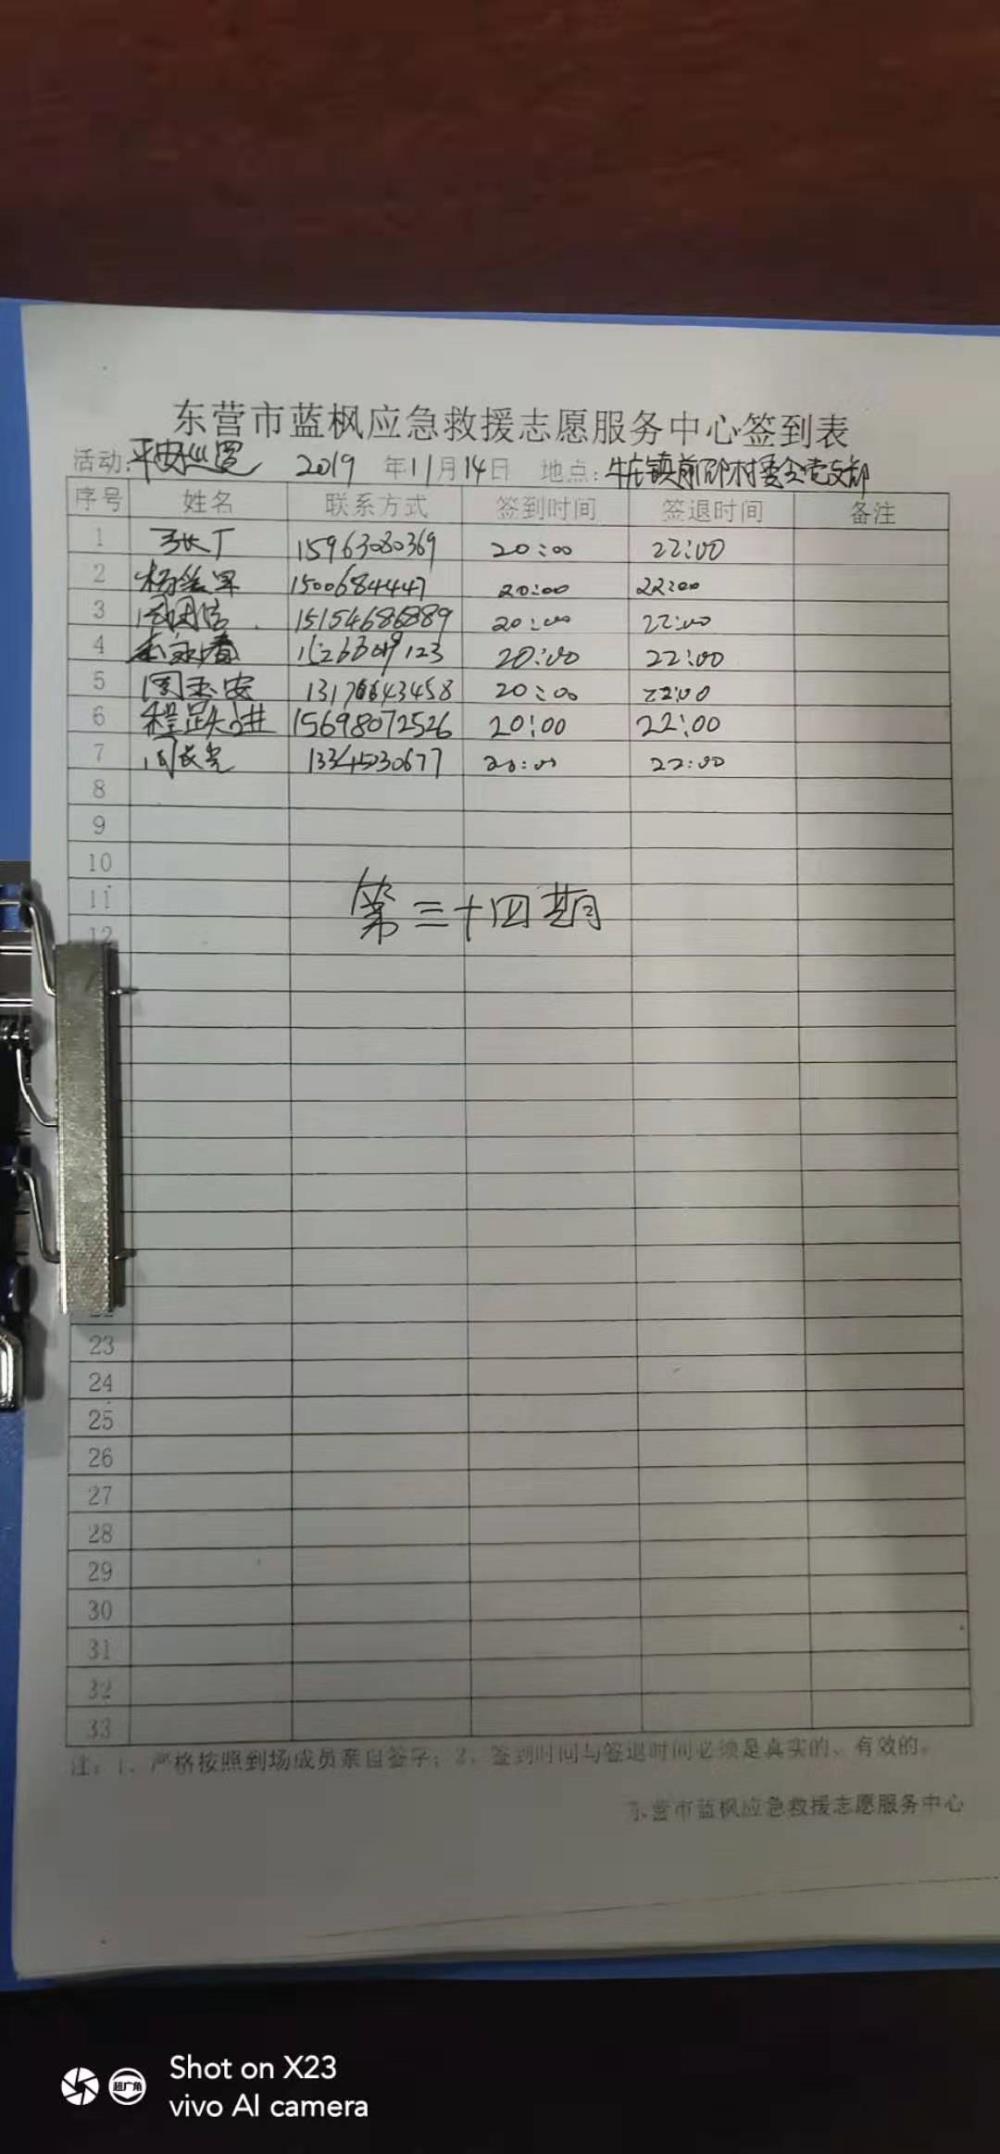 东营市蓝枫应急救援志愿服务中心签到表
活动:平安巡逻 2019 年11月14日 地点:牛庄镇前邵村委会党支部
序号 姓名 联系方式 签到时间 签退时间 备注
1 张广 15963080369 20:00 22:00
2 1500684447 20:00 22:00
3 15154686889 20:00 22:00
4 20:00 22:00
5 周玉安 13176643458 20:00 22:00
6 程跃进 15698072526 20:00 22:00
7 周长光 13345030677 20:00 22:00
8
9
10
11
12
第三十四期
23
24
25
26
27
28
29
30
31
32
33
注:1、严格按照到场成员亲自签字;2、签到时间与签退时间必须是真实的、有效的。
东营市蓝枫应急救援志愿服务中心
超广角
Shot on X23
vivo AI camera